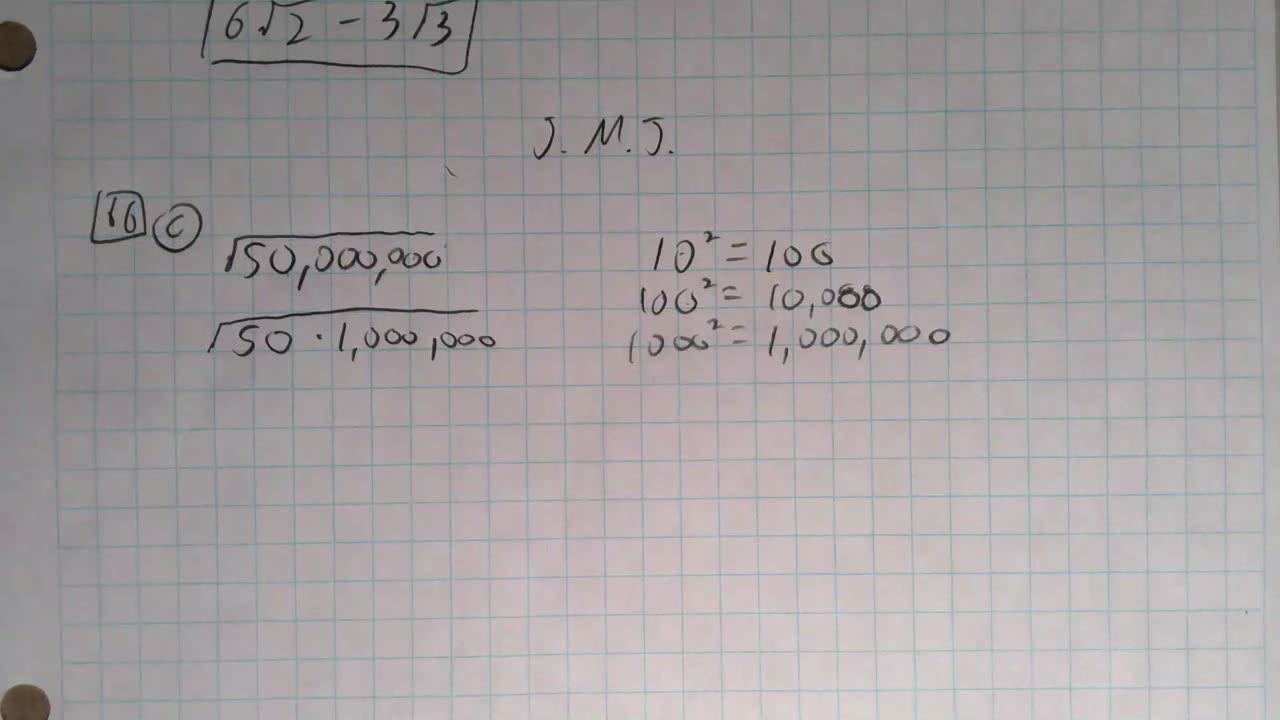 6√2 - 3√3
J. M. J.
16 C
√50,000,000
10² = 100
√50 · 1,000,000
100² = 10,000
1000² = 1,000,000